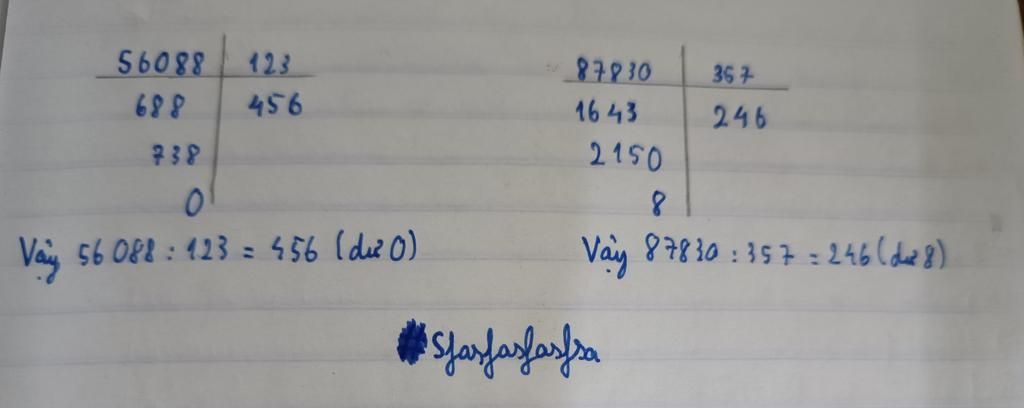 56088 123
688 456
738
0
Vậy 56088 : 123 = 456 (dư 0)
87830 357
1643 246
2150
8
Vậy 87830 : 357 = 246 (dư 8)
#Sfasfasfasfsa